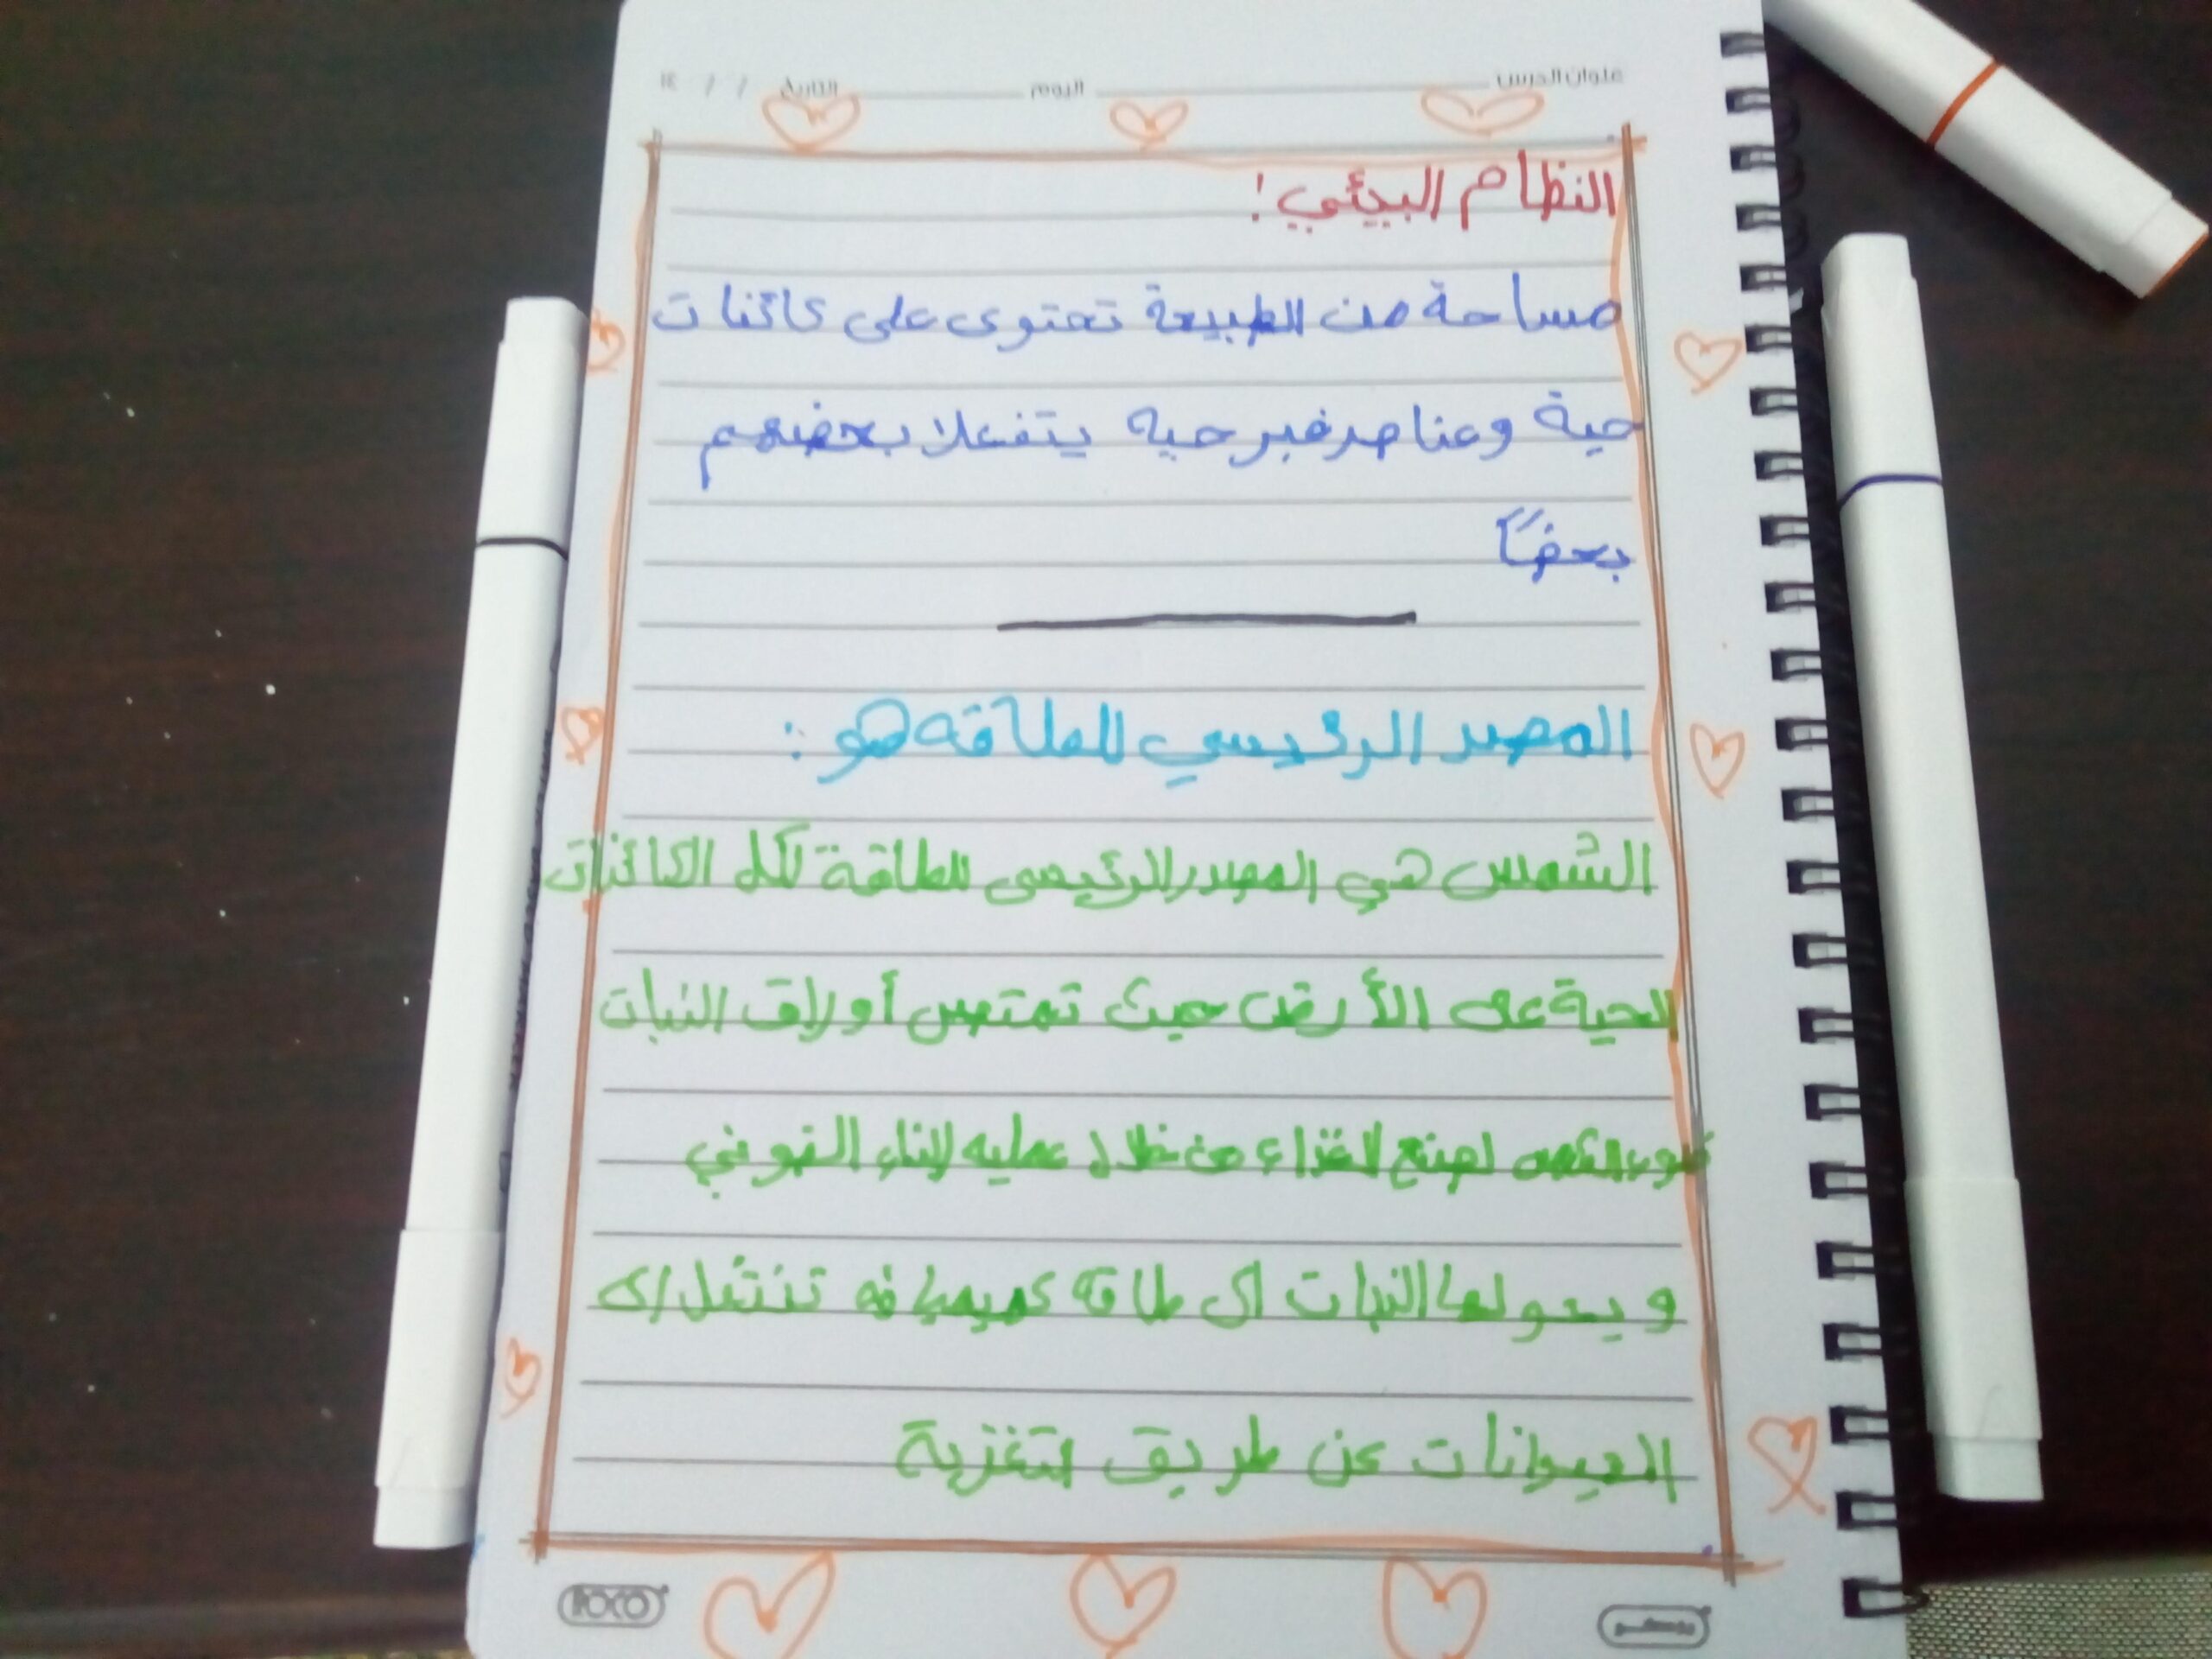 عنوان الدرس اليوم التاريخ / / ١٤
النظام البيئي!
مساحة من الطبيعة تحتوى على كائنات
حية وعناصر غير حيه يتفعلا بعضهم
بعضاً
المصدر الرئيسي للطاقه هو:
الشمس هي المصدر الرئيسى للطاقة لكل الكائنات
الحية على الأرض حيث تمتص أوراق النبات
ضوء الشمس لصنع الغذاء من خلال عمليه البناء الضوئي
ويحولها النبات الى طاقه كيميائيه تنتقل الى
الحيوانات عن طريق التغزية
ROCO